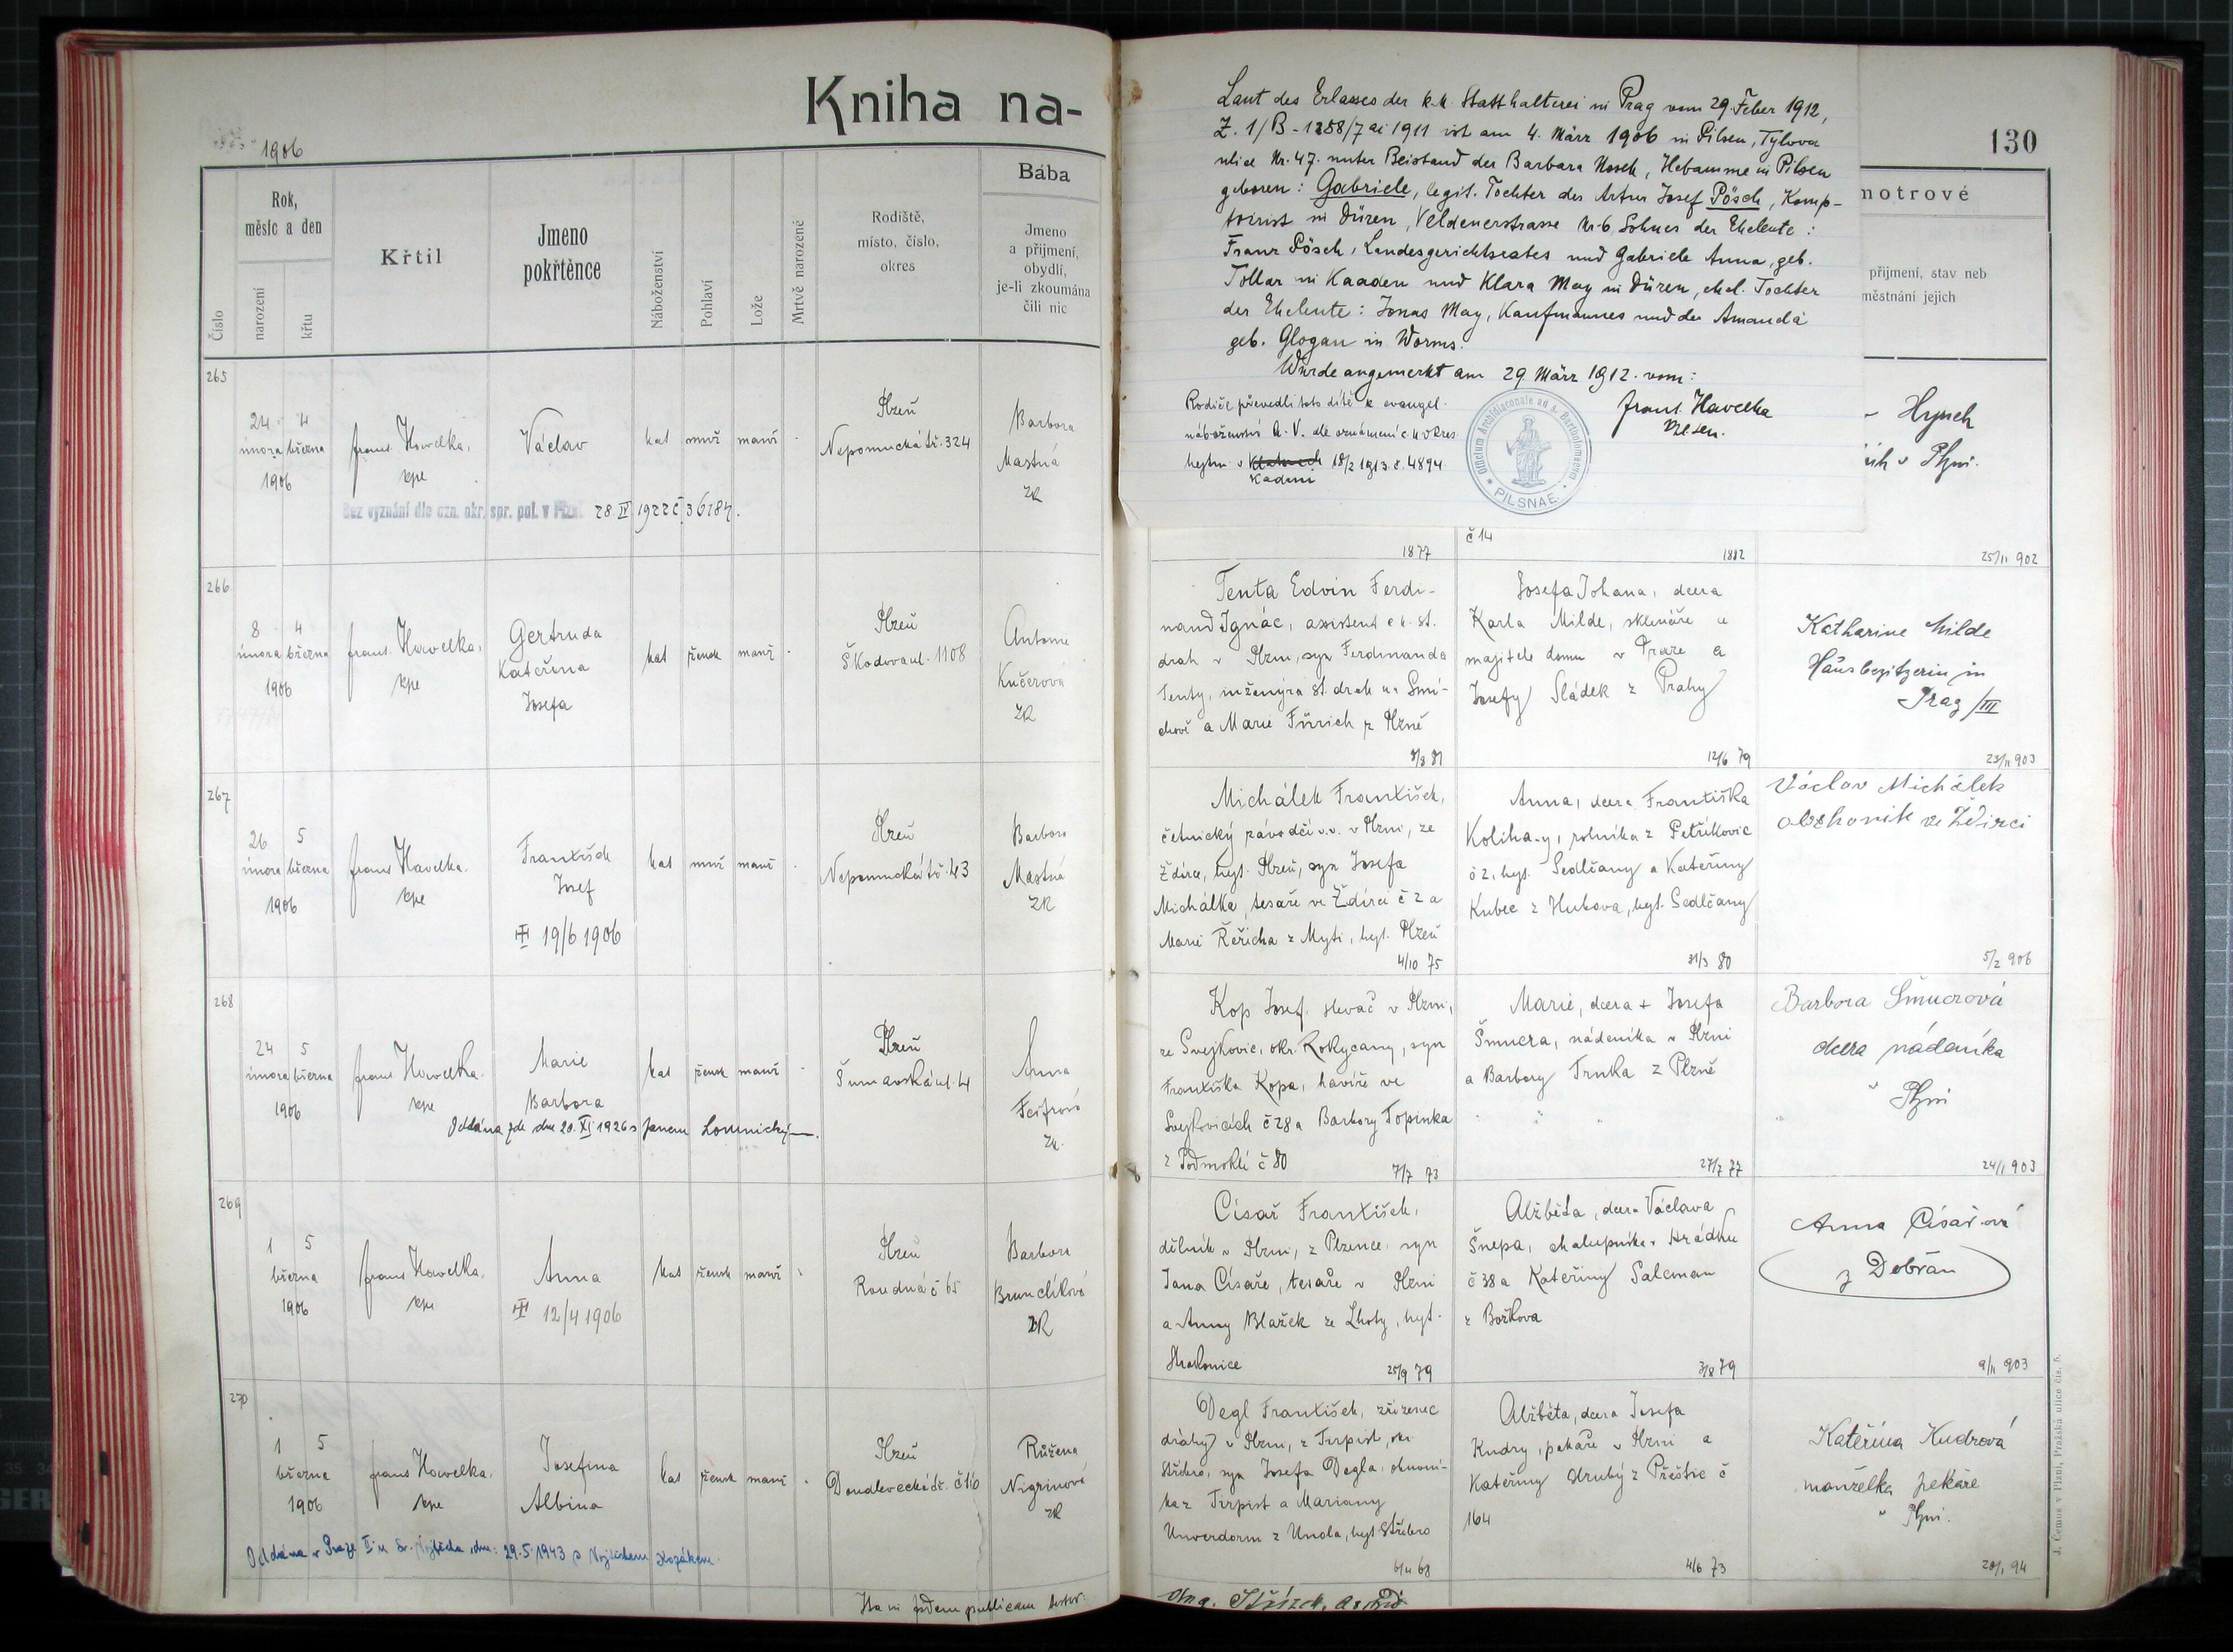 Kniha na-
1906
Číslo
Rok,
měsíc a den
narození
křtu
Křtil
Jmeno
pokřtěnce
Náboženství
Pohlaví
Lože
Mrtvě narozené
Rodiště,
místo, číslo,
okres
Bába
Jmeno
a přijmení,
obydlí,
je-li zkoumána
čili nic
265
24 4
února března
1906
Frant. Havelka,
kpe
Václav
kat
muž
manž
Plzeň
Nepomucká tř. 324
Barbora
Mastná
zk
Bez vyznání dle ozn. okr. spr. pol. v Plzni 28 IV 1922 č. 36184.
266
8 4
února března
1906
Frant. Havelka,
kpe
Gertruda
Kateřina
Josefa
kat
žensk
manž
Plzeň
Škodova ul. 1108
Antonie
Kučerová
zk
267
26 5
února března
1906
Frant. Havelka,
kpe
František
Josef
19/6 1906
kat
muž
manž
Plzeň
Nepomucká tř. 43
Barbora
Mastná
zk
268
24 5
února března
1906
Frant. Havelka,
kpe
Marie
Barbora
kat
žensk
manž
Plzeň
Šumavská ul. 4
Anna
zk.
Oddána zde dne 20. XI 1926 s Janem Lomnickým.
269
1 5
března
1906
Frant. Havelka,
kpe
Anna
12/4 1906
kat
žensk
manž
Plzeň
Roudná č 65
Barbora
Brunclíková
zk
270
1 5
března
1906
Frant. Havelka,
kpe
Josefina
Albina
kat
žensk
manž
Plzeň
Doudlevecká tř. č 110
Růžena
Nigrinová
zk
Oddána v Praze II u sv. Vojtěcha, dne: 29.5.1943 s Vojtěchem Kozákem.
Ita in fidem publicam testor.
Laut des Erlasses der k.k. Statthalterei in Prag vom 29. Feber 1912,
Z. 1/B-1258/7 ai 1911 ist am 4. März 1906 in Pilsen, Tylova
ulice Nr. 47. unter Beistand der Barbara Nosek, Hebamme in Pilsen
geboren: Gabriele, legit. Tochter des Artur Josef Pösch, Komp-
toirist in Düren, Veldenerstrasse Nr. 6, Sohnes der Eheleute:
Franz Pösch, Landesgerichtsrates und Gabriele Anna, geb.
Tollar in Kaaden und Klara May in Düren, ehel. Tochter
der Eheleute: Jonas May, Kaufmannes und der Amanda
geb. Glogau in Worms.
Wurde angemerkt am 29. März 1912. vom:
Frant. Havelka
Pilsen.
Rodiče převedli toto dítě k evangel.
náboženství A. V. dle oznámení c. k. okres.
hejtm. v Klatovech 18/2 1913 č. 4894
Kadani
Officium Archidiaconale ad s. Bartholomaeum
PILSNAE
130
motrové
přijmení, stav neb
městnání jejich
Hynek
v Plzni.
1877
č 14
1882
25/11 902
Tenta Edvin Ferdi-
nand Ignác, assistent c. k. st.
drah v Plzni, syn Ferdinanda
Tenty, inženýra st. drah na Smí-
chově a Marie Fürich z Plzně
Josefa Johana, dcera
Karla Milde, sklenáře a
majitele domu v Praze a
Josefy Sládek z Prahy
Katharine Milde
Hausbesitzerin in
Prag/III
8/3 81
12/6 79
23/11 903
Michálek František,
četnický závodčí v.v. v Plzni, ze
Ždírce, hejt. Plzeň, syn Josefa
Michálka, tesaře ve Ždírci č 2 a
Marie Řeřicha z Mýti, hejt. Plzeň
Anna, dcera Františka
Koliha-y, rolníka z Petříkovic
č 2, hejt. Sedlčany a Kateřiny
Kubec z Hukova, hejt. Sedlčany
Václav Michálek
obchoník ve Ždírci
4/10 75
31/3 80
5/2 906
Kop Josef, slevač v Plzni,
ze Svejkovic, okr. Rokycany, syn
Františka Kopa, havíře ve
Svejkovicích č 28 a Barbory Topinka
z Podmoklí č 80
Marie, dcera + Josefa
Šmucra, nádeníka v Plzni
a Barbory Trnka z Plzně
Barbora Šmucrová
dcera nádeníka
v Plzni
7/7 73
27/7 77
24/1 903
Císař František,
dělník v Plzni, z Plzence, syn
Jana Císaře, tesaře v Plzni
a Anny Blažek ze Lhoty, hejt.
Strakonice
Alžběta, dcera Václava
Šnepa, chalupníka v Hrádku
č 38 a Kateřiny Salcman
z Božkova
Anna Císařová
z Dobřan
25/9 79
3/8 79
9/11 903
Degl František, zřízenec
dráhy v Plzni, z Tirpist, okr.
Stříbro, syn Josefa Degla,
z Tirpist a Mariany
Unverdorm z Unola, hejt. Stříbro
Alžběta, dcera Josefa
Kudry, pekaře v Plzni a
Kateřiny Hrubý z Přeštic č
164
Kateřina Kudrová
manželka pekaře
v Plzni.
6/11 68
4/6 73
20/1 94
J. Čemus v Plzni, Pražská ulice čís. 5.